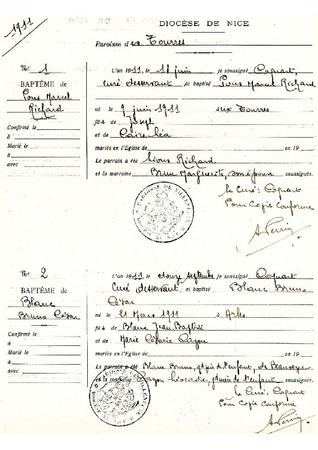 1911
DIOCÈSE DE NICE
Paroisse d es Tourres
N° 1
BAPTÊME de
Pons Marcel
Richard
Confirmé le
à
Marié le
à
avec
L'an 1911, 11 juin, je soussigné Coquart
Curé desservant, ai baptisé Pons Marcel Richard
né 9 juin 1911 aux Tourres
fils de Joseph
et de Caire Léa
mariés en l'Eglise de en 19
Le parrain a été Richard
et la marraine Brun Marguerite, son épouse soussignés.
le Curé: Coquart
Pour Copie Conforme
N° 2
BAPTÊME de
Blanc
Bruno César
Confirmé le
à
Marié le
à
avec
L'an 1911, douze septembre, je soussigné Coquart
Curé Desservant, ai baptisé Blanc Bruno
César
né 21 Mars 1911 à
fils de Blanc Jean Baptiste
et de Marie
mariés en l'Eglise de en 19
Le parrain a été Blanc Bruno, de l'enfant, de
et la marraine de l'enfant soussignés.
le Curé: Coquart
Pour Copie Conforme